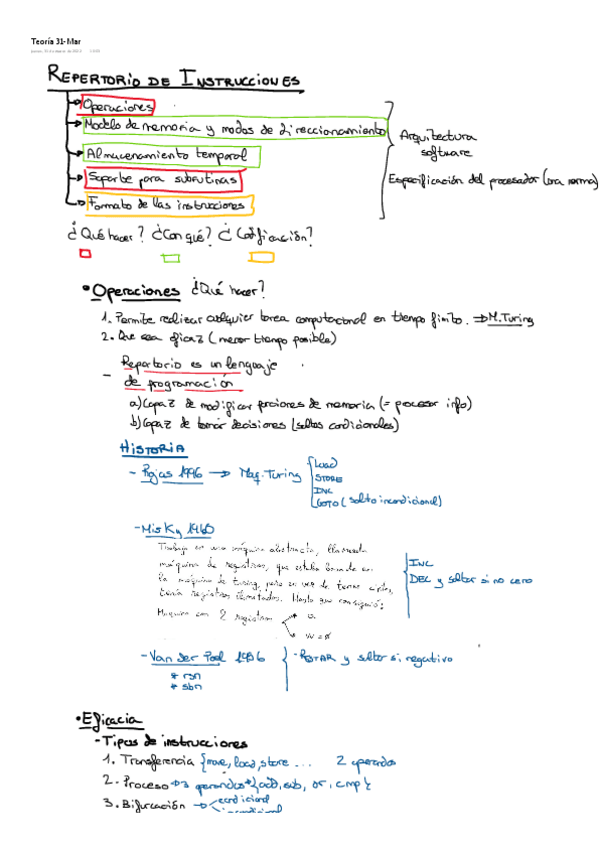 Teoría 31-Mar
REPERTORIO DE INSTRUCCIONES
Operaciones
Modelo de memoria y modos de direccionamiento
Almacenamiento temporal
Soporte para subrutinas
Formato de las instrucciones
Arquitectura
software
Especificación del procesador (otra norma)
¿Qué hacer? ¿Con qué? ¿Codificación?
• Operaciones ¿Qué hacer?
1. Permite realizar cualquier tarea computacional en tiempo finito. ⇒ M.Turing
2. Que sea eficaz (menor tiempo posible)
Repertorio es un lenguaje
- de programación
a) Capaz de modificar porciones de memoria (= procesar info)
b) Capaz de tomar decisiones (saltos condicionales)
HISTORIA
- Rojas 1996 → Maq. Turing
Load
STORE
INC
GOTO (salto incondicional)
- Misky 1960
Trabajo en una máquina abstracta, llamada
máquina de registros, que estaba basada en
la máquina de turing, pero en vez de tener cinta,
tenía registros ilimitados. Hasta que consiguió:
Maquina con 2 registros
INC
DEC y saltar si no cero
- Van der Poel 1956
* rsn
* sbn
- RESTAR y saltar si negativo
• Eficacia
- Tipos de instrucciones
1. Transferencia {move, load, store ... 2 operandos
2. Proceso → 3 operandos → {add, sub, or, cmp}
3. Bifurcación → condicional
incondicional